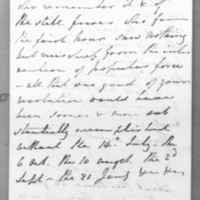 you remember it & of
the state powers who from
the first hour saw nothing
but mischief from the inter
vention of popular force
- all that was good of your
revolution would have
been sooner & more sub
stantially accomplished
without the 14th July - the
6 Oct. the 10 August the 2d
Sept - the 21 Jany